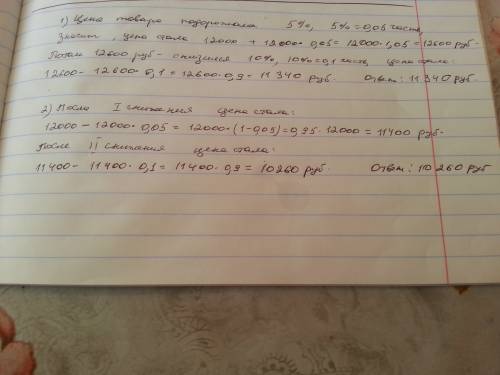 1) Цена товара подорожала 5%, 5% = 0,05 часть,
Значит, цена стала 12000 + 12000 · 0,05 = 12000 · 1,05 = 12600 руб.
Потом 12600 руб - снизился 10%, 10% = 0,1 часть, цена стала:
12600 - 12600 · 0,1 = 12600 · 0,9 = 11340 руб. Ответ: 11 340 руб.
2) После I снижения цена стала:
12000 - 12000 · 0,05 = 12000 · (1-0,05) = 0,95 · 12000 = 11400 руб.
После II снижения цена стала:
11400 - 11400 · 0,1 = 11400 · 0,9 = 10260 руб. Ответ: 10 260 руб